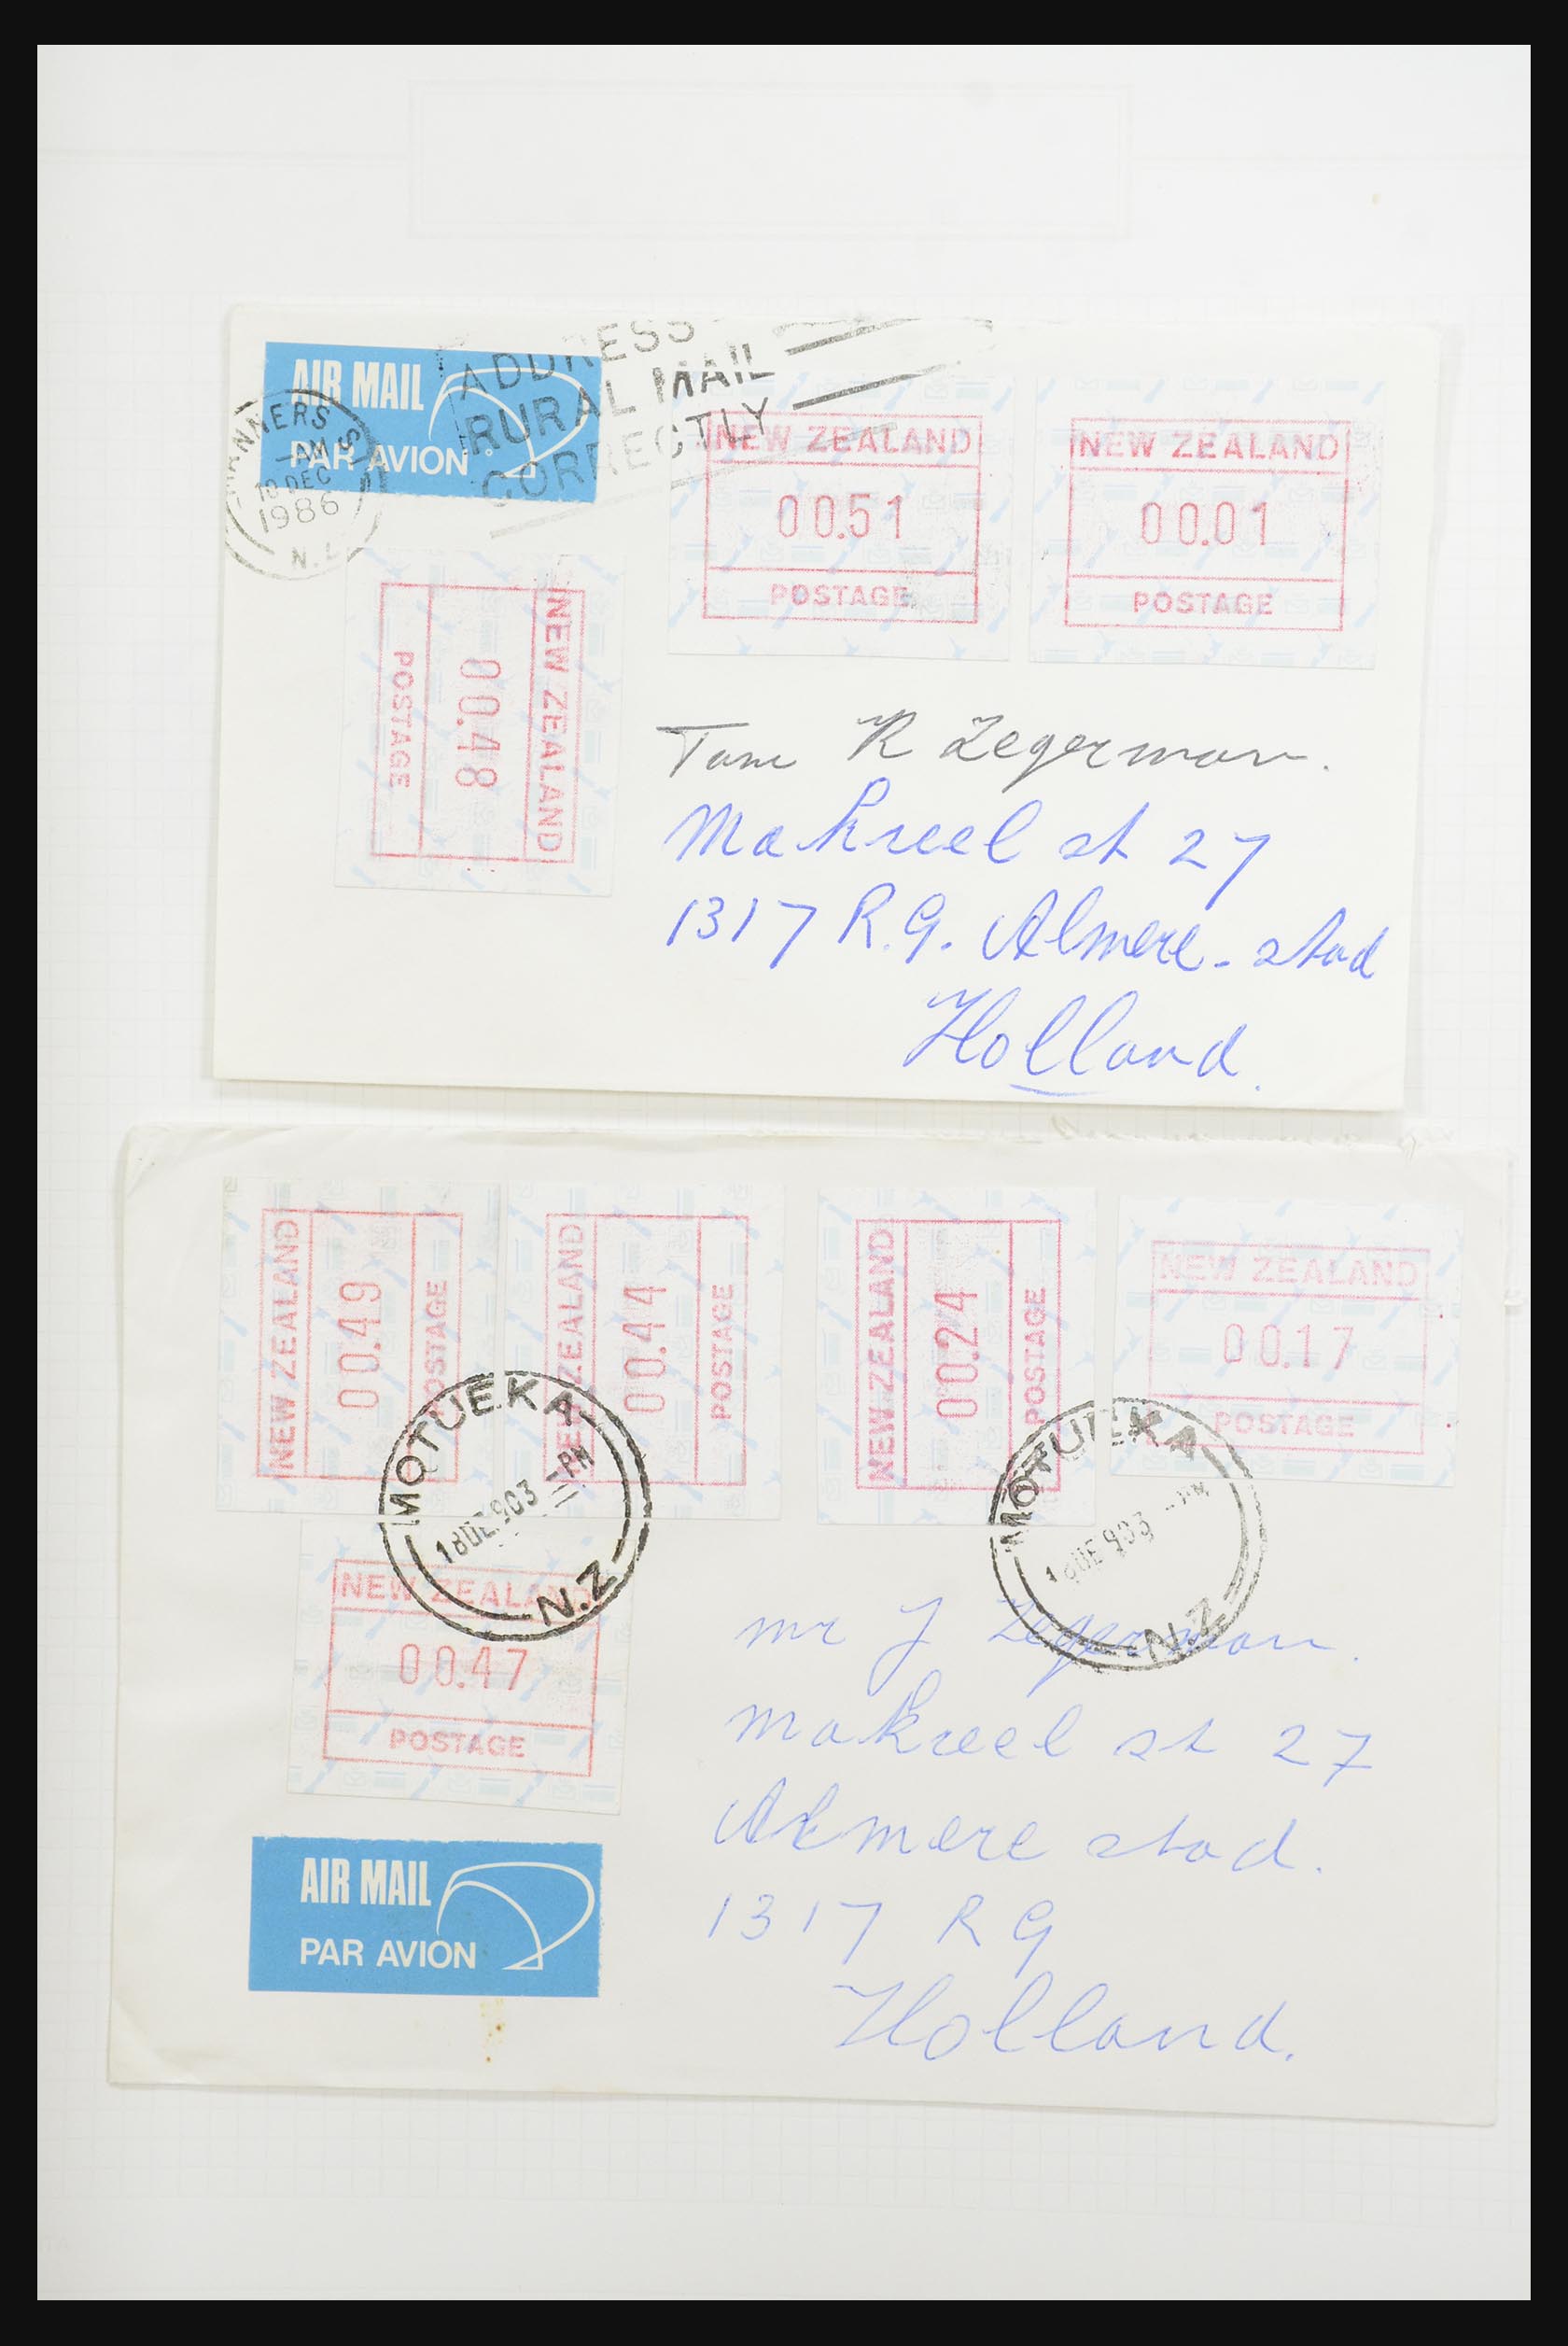 ADDRESS
RURAL MAIL
CORRECTLY
AIR MAIL
PAR AVION
MANNERS ST
-AM
10 DEC
1986
N.Z.
NEW ZEALAND
00.51
POSTAGE
NEW ZEALAND
00.01
POSTAGE
NEW ZEALAND
00.48
POSTAGE
R Zegerman.
Makreel st 27
1317 R.G. Almere-stad
Holland.
NEW ZEALAND
00.49
POSTAGE
NEW ZEALAND
00.44
POSTAGE
NEW ZEALAND
00.24
POSTAGE
NEW ZEALAND
00.17
POSTAGE
MOTUEKA
-PM
18DE903
N.Z
MOTUEKA
-PM
18DE903
N.Z
NEW ZEALAND
00.47
POSTAGE
mr J Zegerman.
makreel st 27
Almere stad.
1317 RG
Holland.
AIR MAIL
PAR AVION